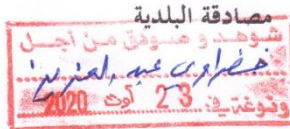 مصادقة البلدية
شوهد و صودق من أجل
خضراوي عبد العزيز
وغة في: 23 أوت 2020